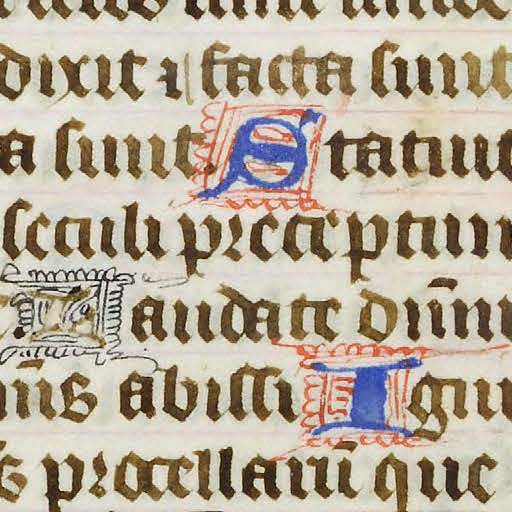 dixit ⁊ facta sunt
a sunt. Statuit
seculi preceptum
Laudate dūm
mīs abissi Igni
s procellarū que